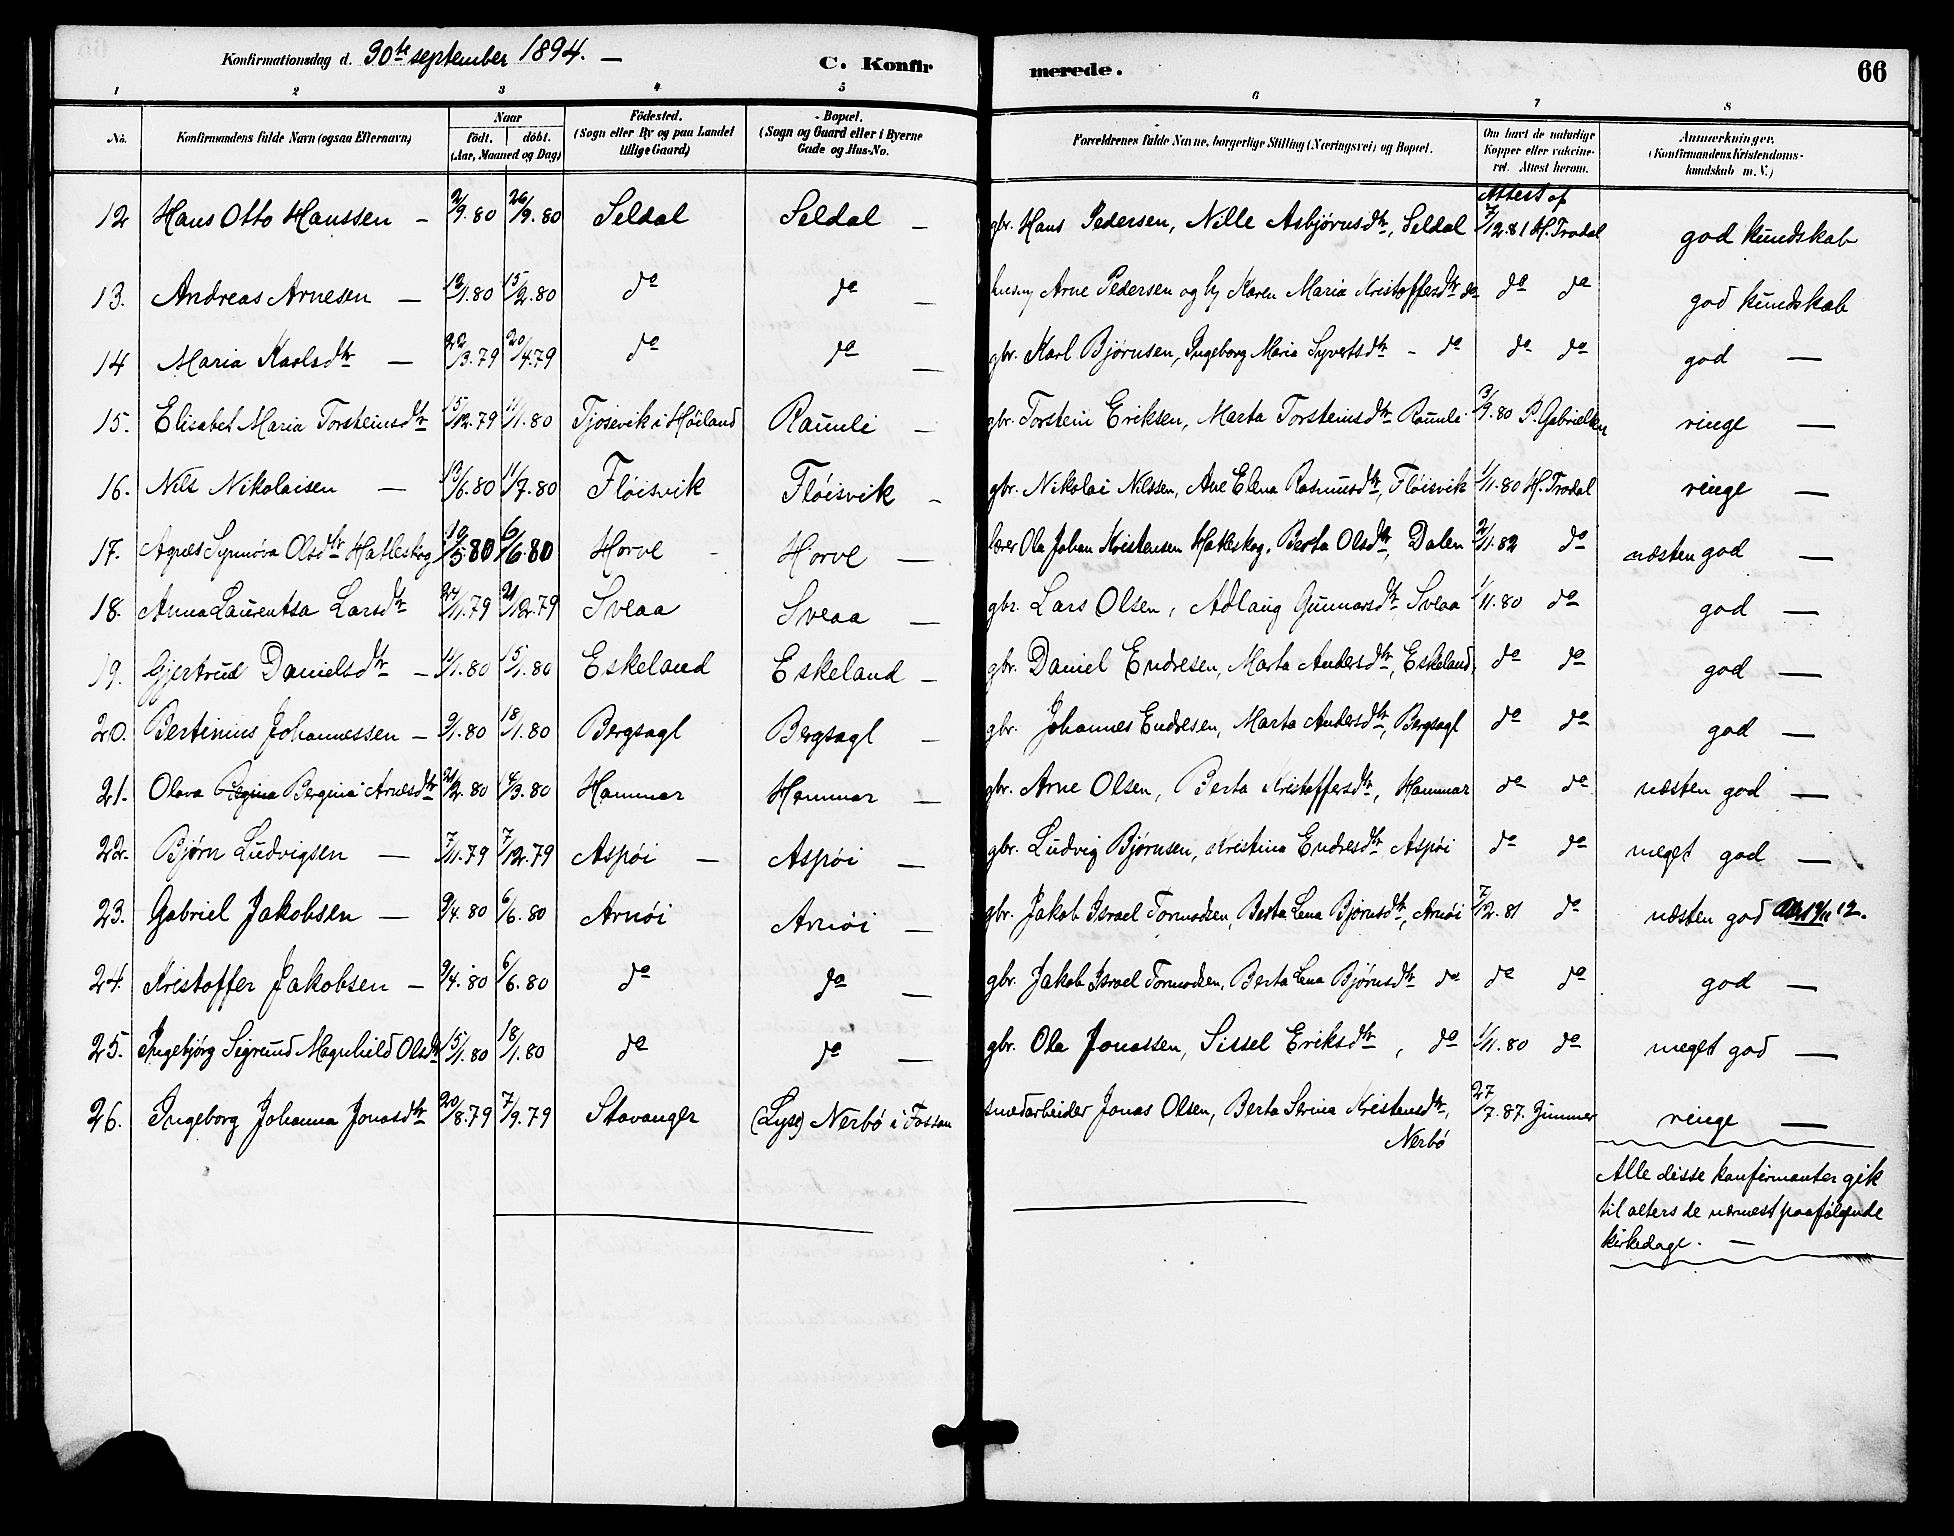 Konfirmationsdag d. 30te september 1894. —
C. Konfir merede. 66
1 2 3 4 5 6 7 8
No. Konfirmandens fulde Navn (ogsaa Efternavn) Naar födt. döbt. (Aar, Maaned og Dag) Födested. (Sogn eller By og paa Landet tillige Gaard) Bopæl. (Sogn og Gaard eller i Byerne Gade og Hus-No. Forældrenes fulde Navne, borgerlige Stilling (Næringsvei) og Bopæl. Om havt de naturlige Kopper eller vakcineret. Attest herom. Anmærkninger. (Konfirmandens Kristendomskundskab m. V.)
12 Hans Otto Hanssen — 2/9.80 26/9.80 Seldal Seldal — gbr. Hans Pedersen, Nille Asbjørnsdtr, Seldal Attest af 7/12.81 H. Trodal god kundskab
13. Andreas Arnesen — 13/1.80 15/2.80 do do — husm Arne Pedersen og h/ Karen Maria Kristoffersdtr do do do god kundskab
14 Maria Karlsdtr — 22/3.79 20/4.79 do do — gbr. Karl Bjørnsen, Ingeborg Maria Syvertsdtr - do do do god —
15. Elisabet Maria Torsteinsdtr 15/12.79 11/1.80 Tjosevik i Høiland Raunli — gbr. Torstein Eriksen, Marta Torsteinsdtr Raunli 3/9.80 P. Gabrielsen ringe —
16. Nils Nikolaisen — 13/6.80 11/7.80 Fløisvik Fløisvik — gbr. Nikolai Nilssen, Ane Elena Rasmusdtr, Fløisvik 1/11.80 H. Trodal ringe —
17. Agnes Synnøva Olsdtr Hatleskog 10/5 80 6/6.80 Horve - Horve — lærer Ola Johan Kristensen Hatleskog, Berta Olsdtr, Dalen 2/11.82 do næsten god —
18. Anna Laurentsa Larsdtr 24/11.79 21/12.79 Sveaa Sveaa — gbr. Lars Olsen, Adlaug Gunnarsdtr Sveaa 1/11.80 do god —
19. Gjertrud Danielsdtr — 11/1.80 15/1.80 Eskeland Eskeland — gbr. Daniel Endresen, Marta Andersdtr, Eskeland, do do god —
20. Bertinius Johannessen — 3/1.80 18/1.80 Bergsagl Bergsagl — gbr. Johannes Endresen, Marta Andersdtr, Bergsagl do do god —
21. Olava Regina Bergina Arnesdtr 21/2.80 4/3.80 Hammar Hammar — gbr. Arne Olsen, Berta Kristoffersdtr, Hammar do do næsten god —
22. Bjørn Ludvigsen — 7/11.79 7/12.79 Aspøi — Aspøi — gbr. Ludvig Bjørnsen, Kristina Endresdtr Aspøi do do meget god —
23. Gabriel Jakobsen — 9/4.80 6/6.80 Arnøi Arnøi — gbr. Jakob Israel Tormodsen, Berta Lena Bjørnsdtr, Arnøi 7/12.81 do næsten god 12.
24. Kristoffer Jakobsen — 9/4.80 6/6.80 do do — gbr. Jakob Israel Tormodsen, Berta Lena Bjørnsdtr do do do god —
25. Ingebjørg Sigrund Magnhild Olsdtr 15/1.80 18/1.80 do do — gbr. Ola Jonassen, Sissel Eriksdtr, do 1/11.80 do meget god —
26. Ingeborg Johanna Jonasdtr 20/8.79 7/9.79 Stavanger (Lyse) Nerbø i Fossan smedarbeider Jonas Olsen, Berta Serina Kristensdtr, 27/7.87. Zimmer ringe —
Nerbø
Alle disse konfirmanter gik
til alters de nærmest paafølgende
kirkedage. —